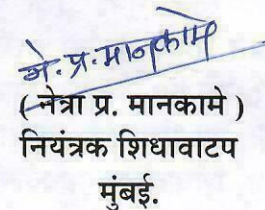 ने. प्र. मानकामे
( नेत्रा प्र. मानकामे )
नियंत्रक शिधावाटप
मुंबई.